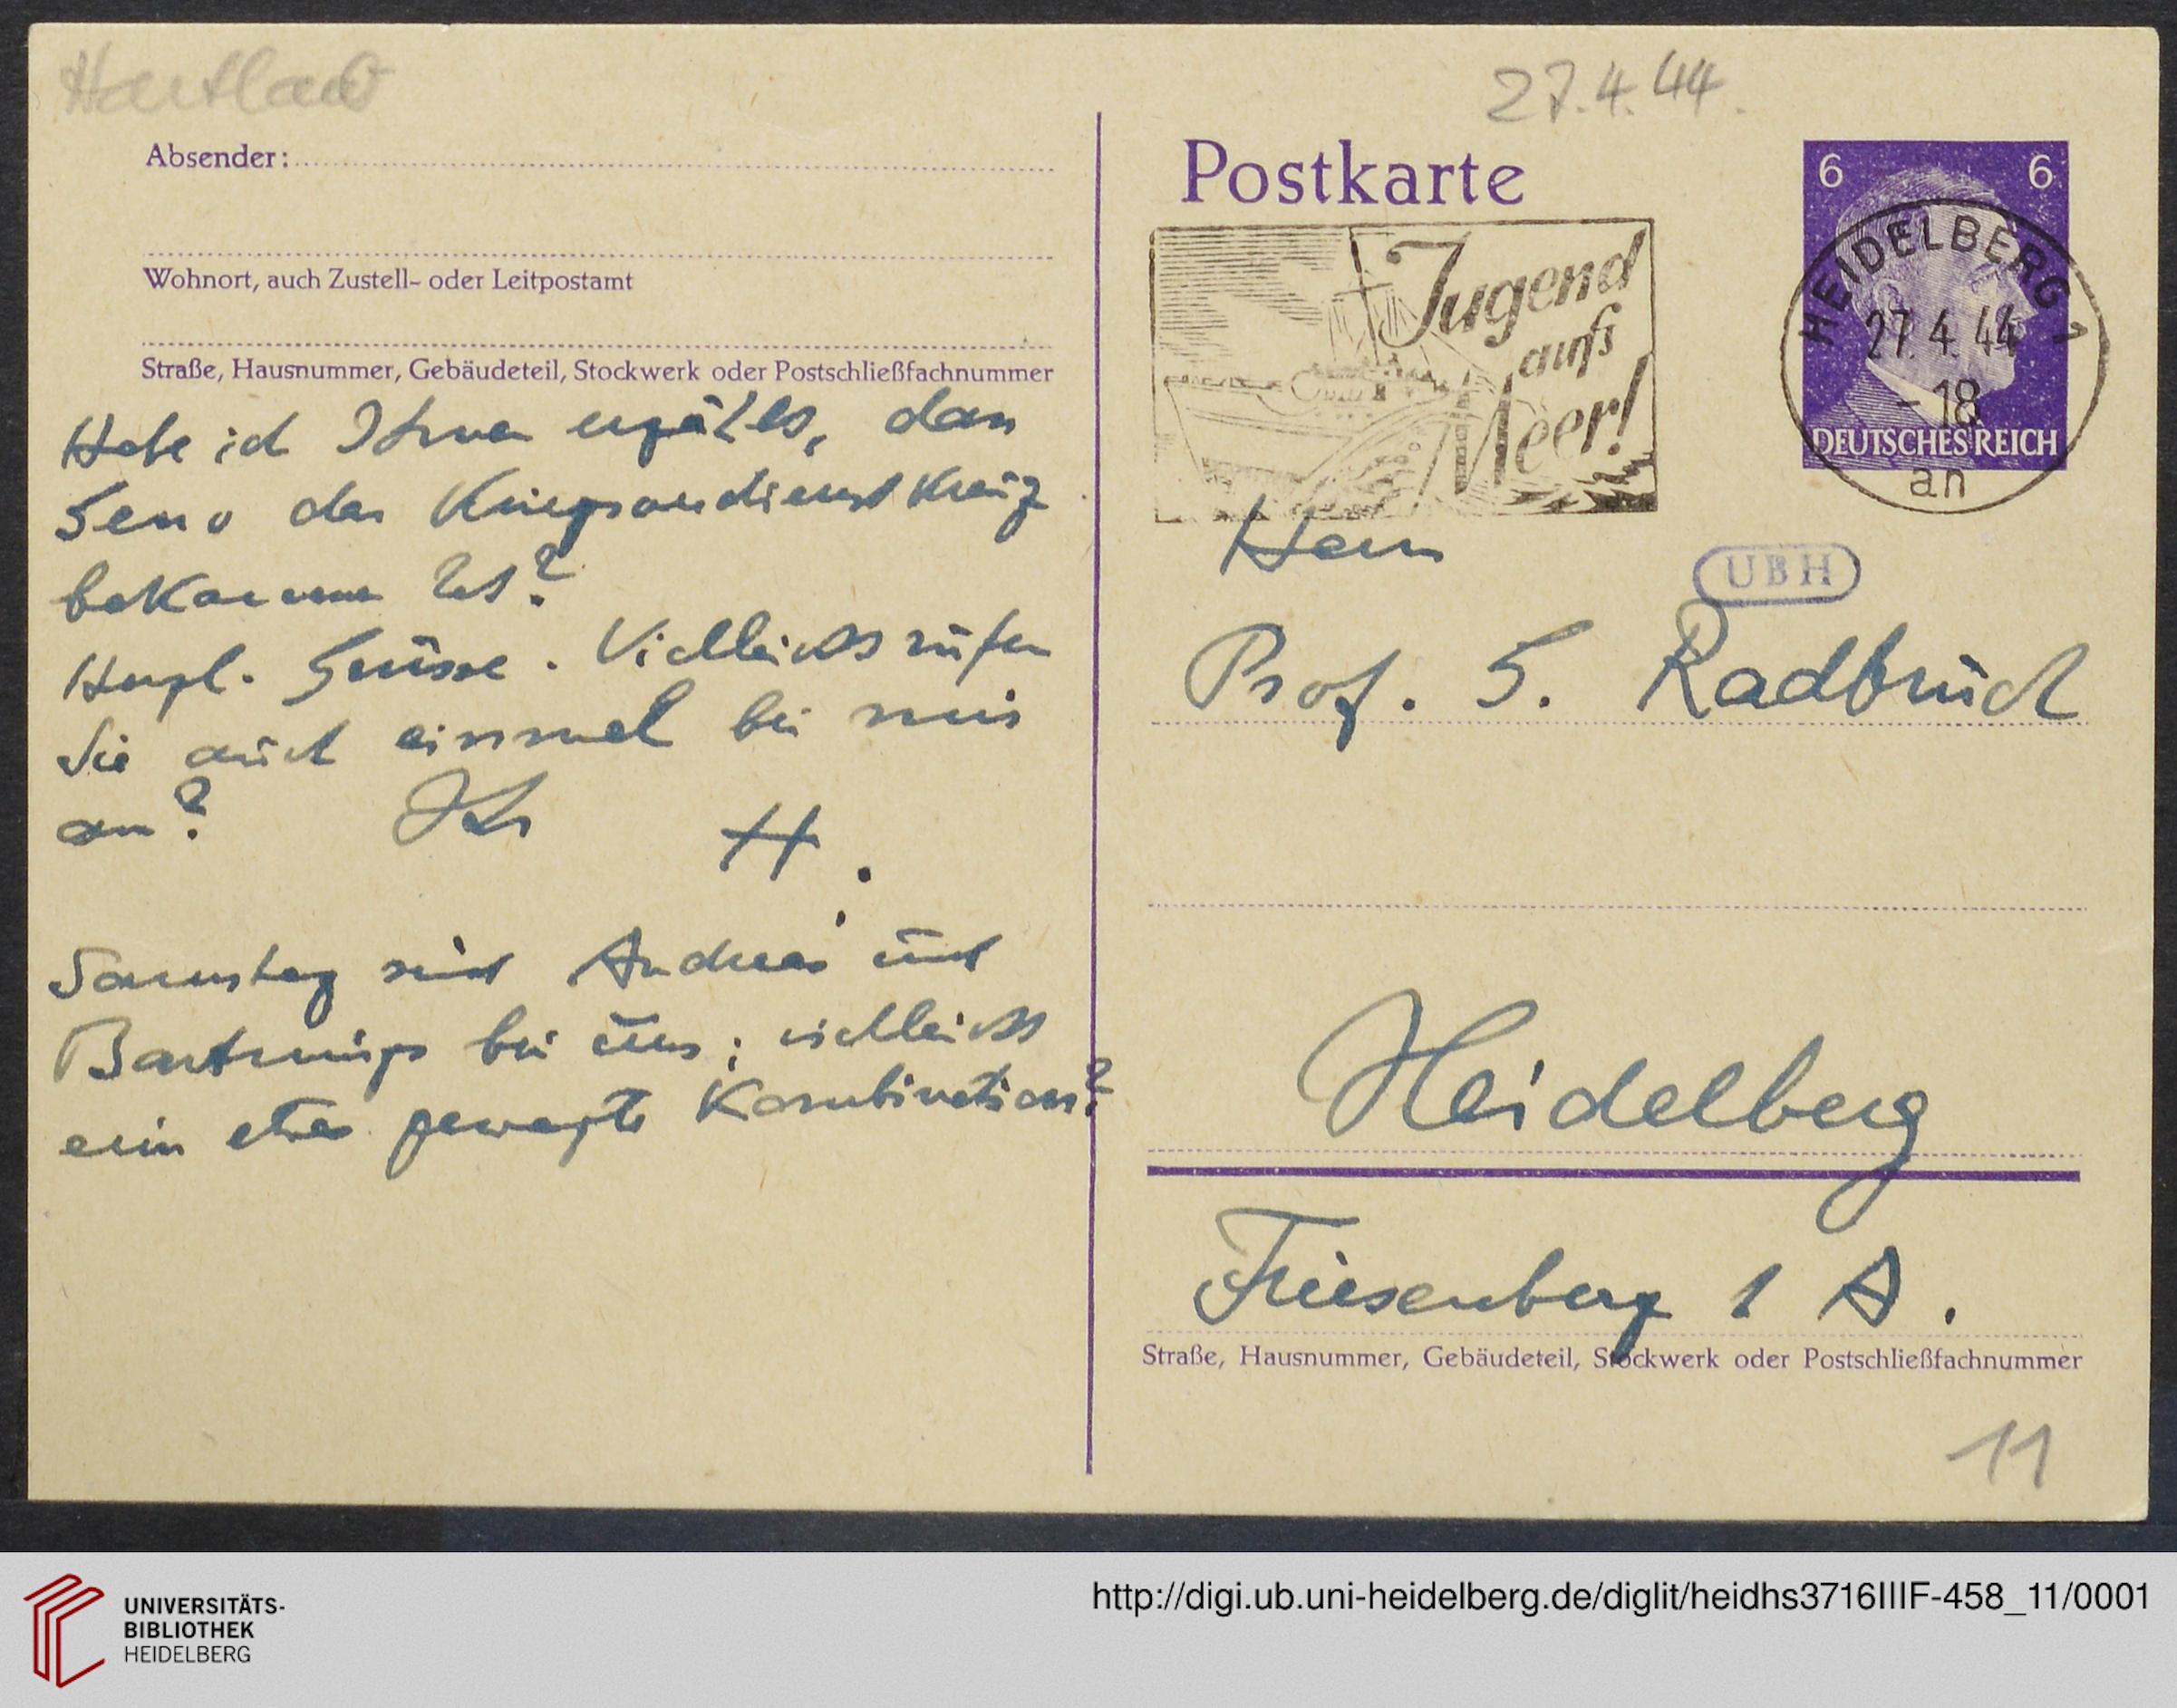 Hartlaub
27.4.44.
Absender:
Wohnort, auch Zustell- oder Leitpostamt
Straße, Hausnummer, Gebäudeteil, Stockwerk oder Postschließfachnummer
Habe ich Ihnen erzählt, dass
Geno das Kriegsverdienstkreuz
bekommen hat?
Herzl. Grüsse. Vielleicht rufen
Sie auch einmal bei mir
an? Ihr H.
Samstag sind und
Bartnings bei uns; vielleicht
eine etwas gewagte Kombination?
Postkarte
Jugend
aufs
Meer!
6 6
HEIDELBERG 1
27.4.44
-18
DEUTSCHES REICH
an
UBH
Herrn
Prof. G. Radbruch
Heidelberg
Friesenberg 1 A.
Straße, Hausnummer, Gebäudeteil, Stockwerk oder Postschließfachnummer
11
UNIVERSITÄTS-
BIBLIOTHEK
HEIDELBERG
http://digi.ub.uni-heidelberg.de/diglit/heidhs3716IIIF-458_11/0001